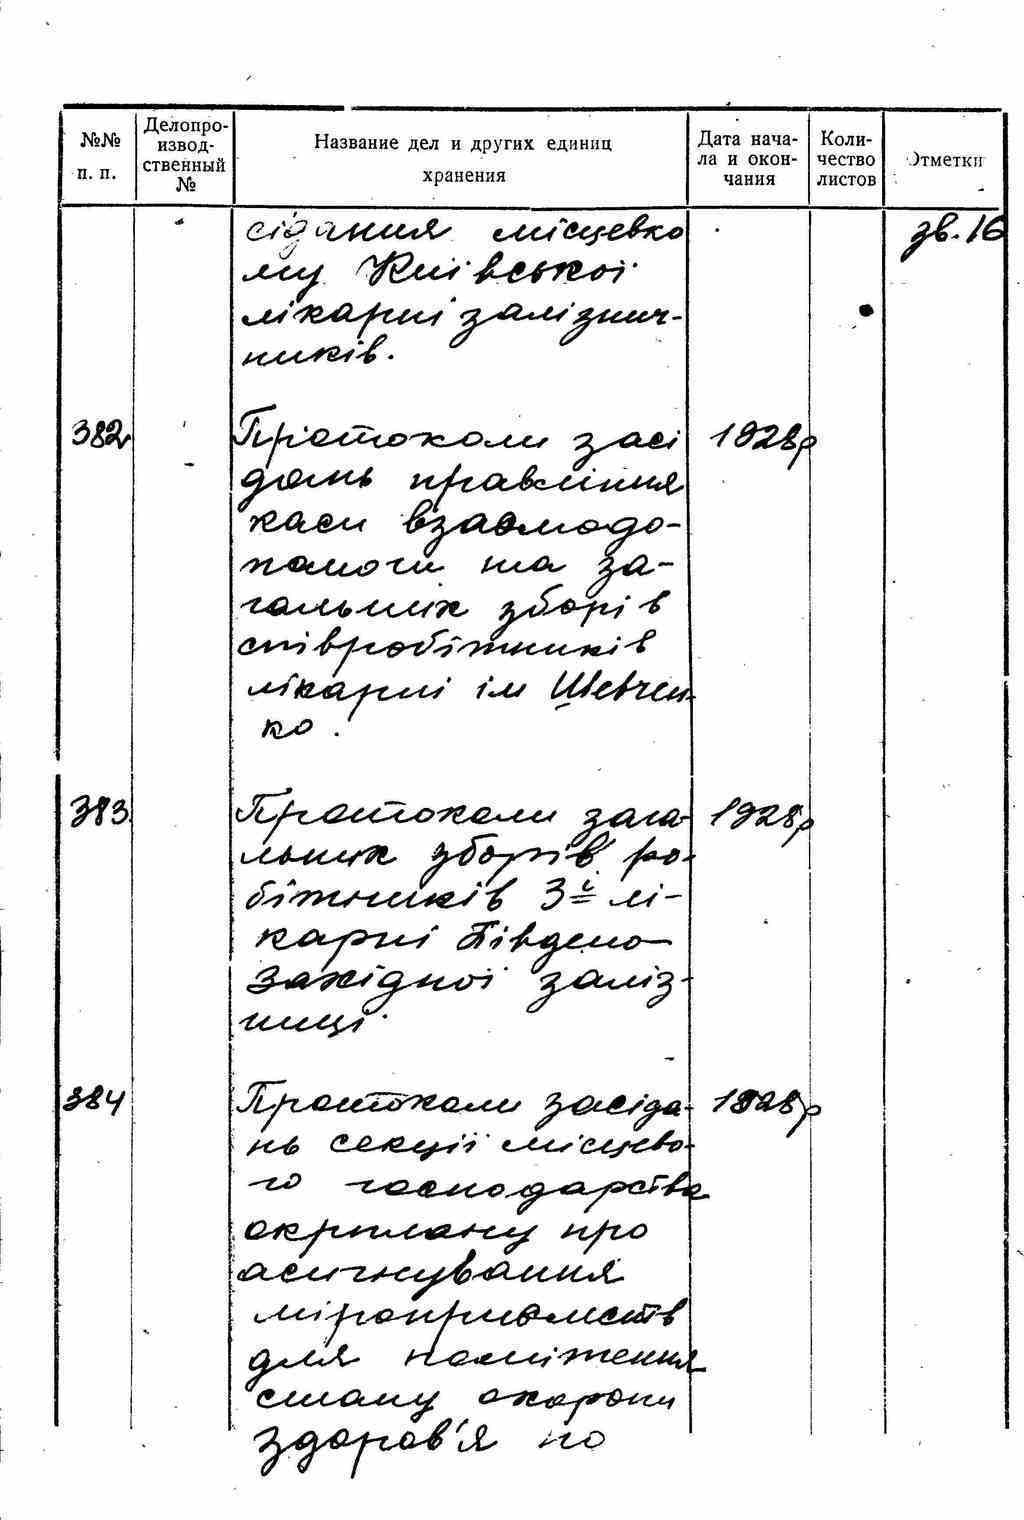 №№ п. п.
Делопроизвод-
ственный
№
Название дел и других единиц
хранения
Дата нача-
ла и окон-
чания
Коли-
чество
листов
Отметки
сідання місцевко зв. 16
му Київської
лікарні залізнич-
ників.
382 Протоколи засі 1928р
дань правління
каси взаємодо-
помоги та за-
гальних зборів
співробітників
лікарні ім Шевчен-
ко.
383. Протоколи зага- 1928р
льних зборів ро-
бітників 3ї лі-
карні Південо-
Західної заліз-
ниці.
384 Протоколи засіда- 1928р
нь секції місцево-
го господарства
окрплану про
асигнування
міроприємств
для поліпшення
стану охорони
здоров'я по